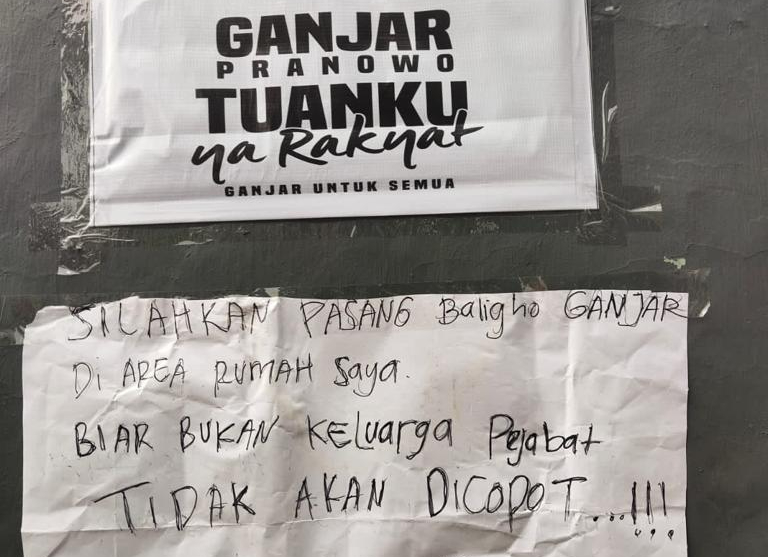 GANJAR
PRANOWO
TUANKU
ya Rakyat
GANJAR UNTUK SEMUA
SILAHKAN PASANG Baligho GANJAR
Di AREA RUMAH Saya.
BIAR BUKAN KELuarga Pejabat
TIDAK AKAN DICOPOT...!!!